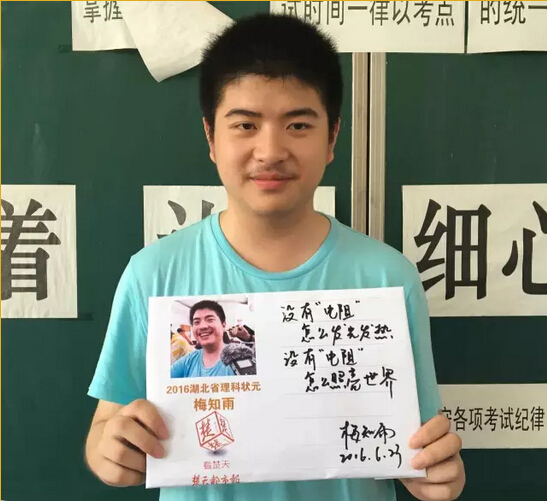 掌握
试时间一律以考点
的统一
着
细心
没有"电阻"
怎么发光发热
没有"电阻"
怎么照亮世界
2016湖北省理科状元
梅知雨
看楚天
楚天都市报
梅知雨
2016.6.23
各项考试纪律